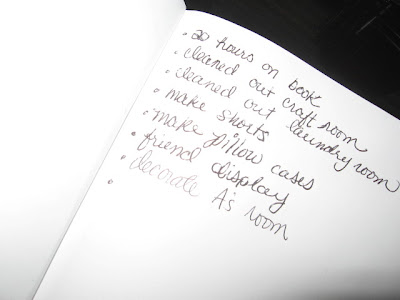 • 20 hours on book
• cleaned out craft room
• cleaned out laundry room
• make shorts
• make pillow cases
• friend display
• decorate A's room
•